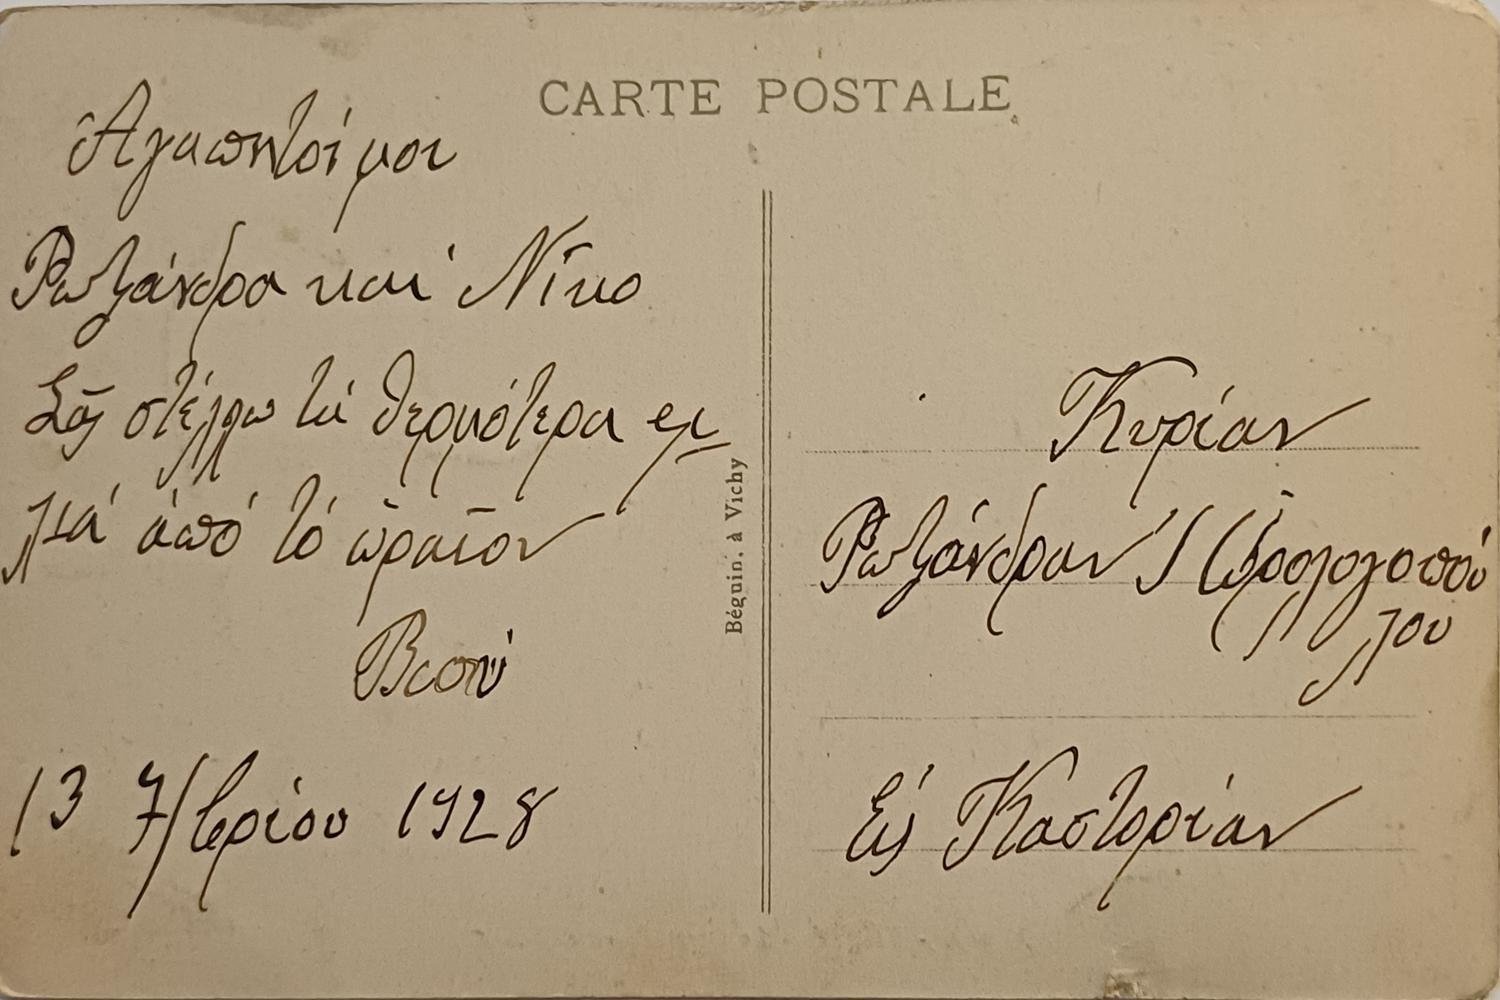 CARTE POSTALE
Ἀγαπητοί μου
Ρωξάνδρα καὶ Νῖκο
Σᾶς στέλλω τὰ θερμότερα φι
λιά ἀπό τό ὡραῖον
Βισύ
13 7/βρίου 1928
Béguin, à Vichy
Κυρίαν
Ρωξάνδραν Ι
λου
Εἰς Καστορίαν